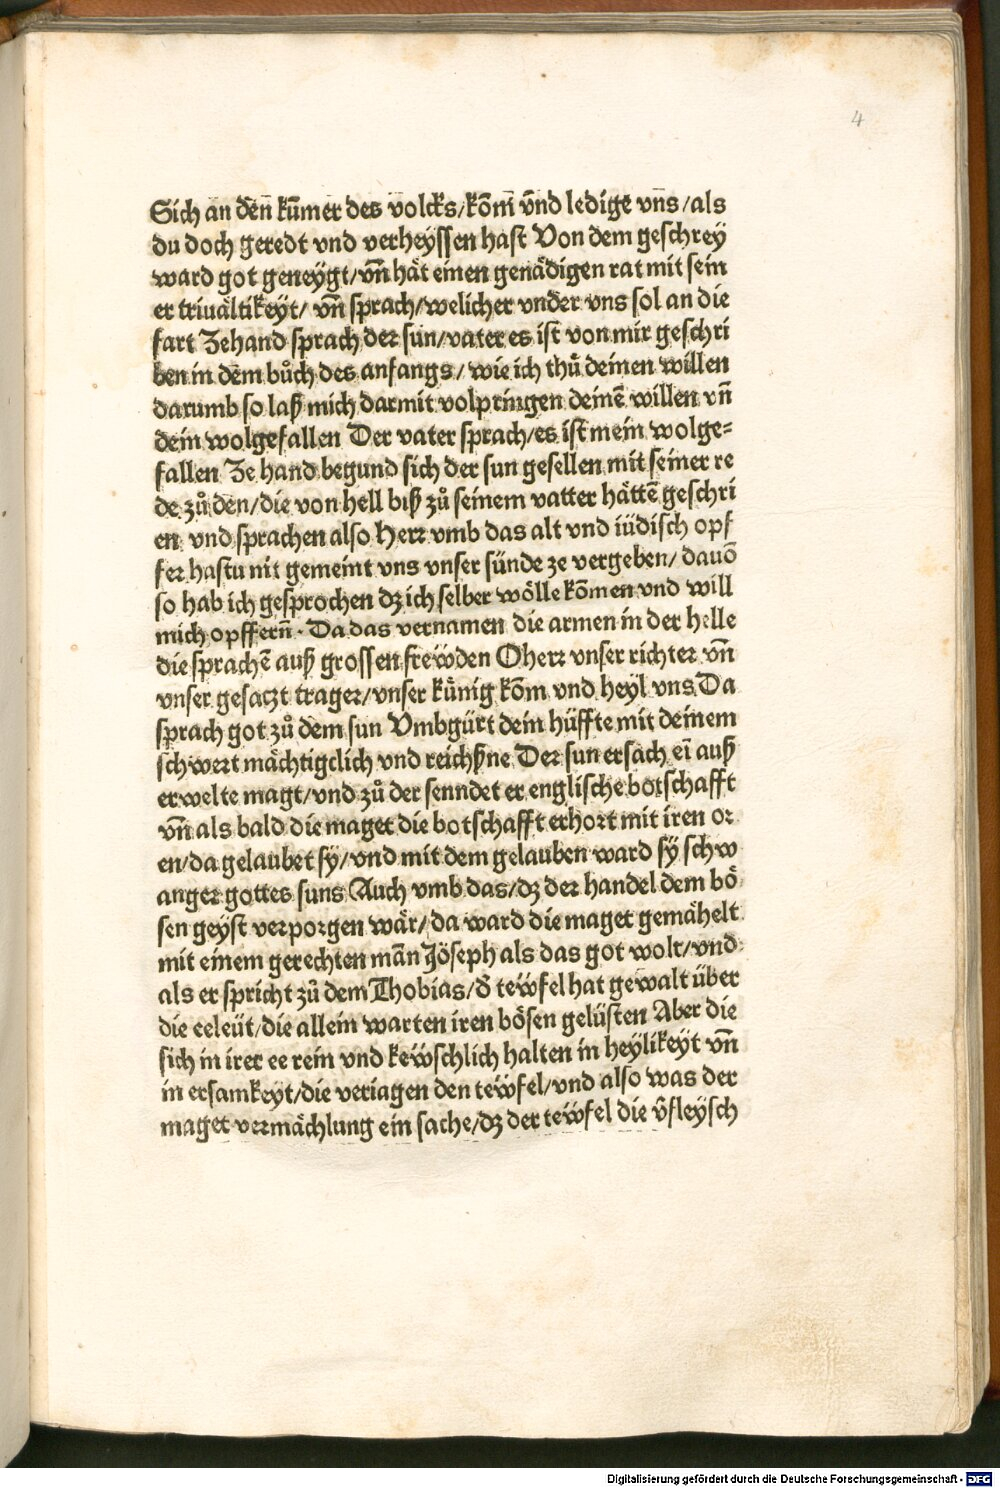 4
Sich an den kūmer des volcks/kōm vnd ledige vns/als
du doch geredt vnd verheyssen hast Von dem geschrey
ward got geneygt/vn̄ hät einen genädigen rat mit sein
er triuältikeyt/ vn̄ sprach/welicher vnder vns sol an die
fart Zehand sprach der sun/vater es ist von mir geschri
ben in dem bůch des anfangs/wie ich thů deinen willen
darumb so laß mich darmit volpringen deinē willen vn̄
dein wolgefallen Der vater sprach/es ist mein wolge⸗
fallen Ze hand begund sich der sun gesellen mit seiner re
de zů den/die von hell biß zů seinem vatter hättē geschri
en vnd sprachen also Herr vmb das alt vnd iüdisch opf
fer hastu nit gemeint vns vnser sünde ze vergeben/ dauō
so hab ich gesprochen dz ich selber wölle kōmen vnd will
mich opffern̄. Da das vernamen die armen in der helle
die sprachē auß grossen frewden O herr vnser richter vn̄
vnser gesaczt trager/vnser künig kōm vnd heyl vns Da
sprach got zů dem sun Vmbgürt dein hüffte mit deinem
schwert mächtigclich vnd reichßne Der sun ersach ei auß
erwelte magt/vnd zů der senndet er englische botschafft
vn̄ als bald die maget die botschafft erhort mit iren or
en/da gelaubet sÿ/vnd mit dem gelauben ward sÿ schw
anger gottes suns Auch vmb das/dz der handel dem bö
sen geyst verporgen wär/da ward die maget gemähelt
mit einem gerechten mān Jöseph als das got wolt/vnd
als er spricht zů dem Thobias/d̄ tewfel hat gewalt über
die eeleüt/die allein warten iren bösen gelüsten Aber die
sich in irer ee rein vnd kewschlich halten in heylikeyt vn̄
in ersamkeyt/die veriagen den tewfel/vnd also was der
maget vermächlung ein sache/dz der tewfel die v̄fleysch
Digitalisierung gefördert durch die Deutsche Forschungsgemeinschaft - DFG